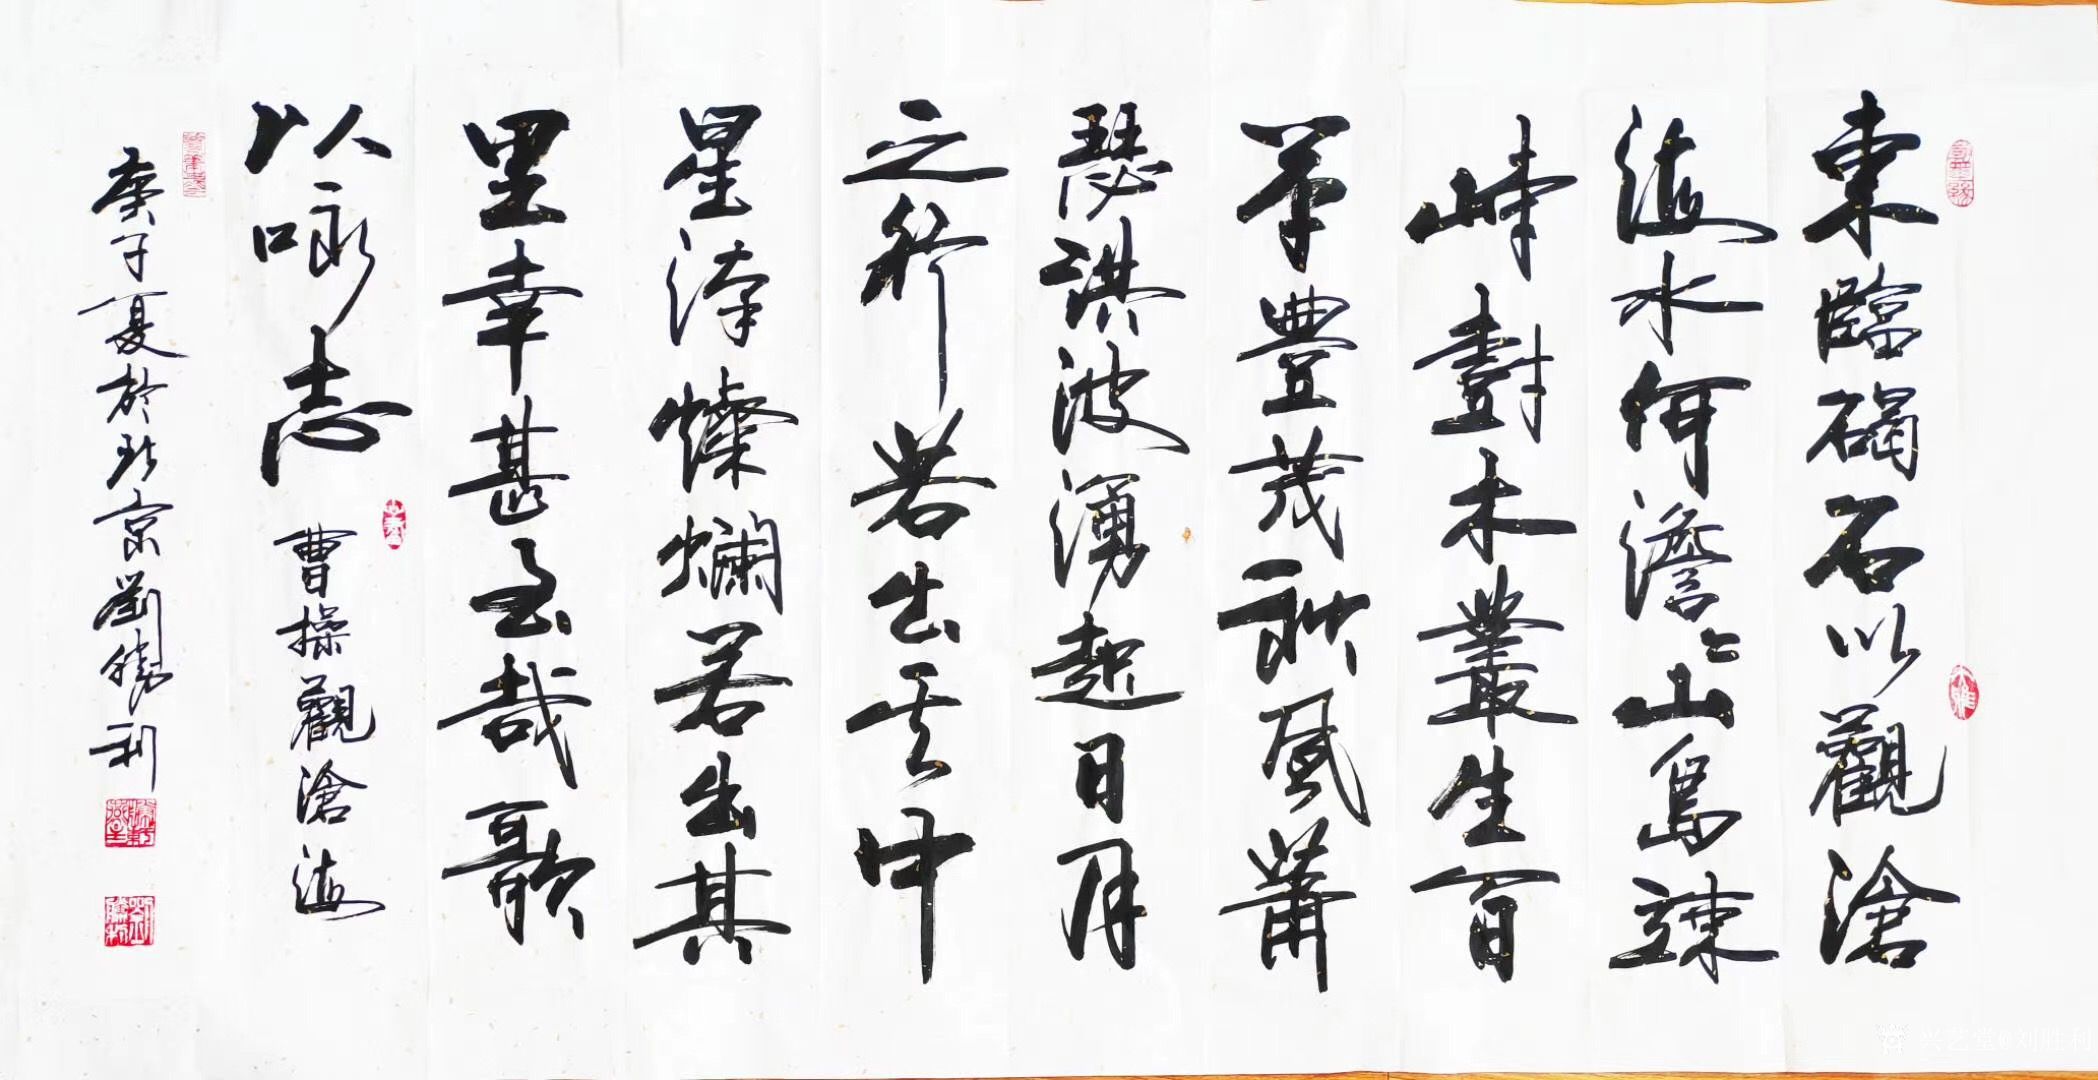 東臨碣石以觀滄
海水何澹〻山島竦
峙樹木叢生百
草豐茂秋風蕭
瑟洪波湧起日月
之行若出其中
星漢燦爛若出其
里幸甚至哉歌
以咏志 曹操觀滄海
庚子夏於北京劉勝利
劉勝利
兴艺堂@刘胜利